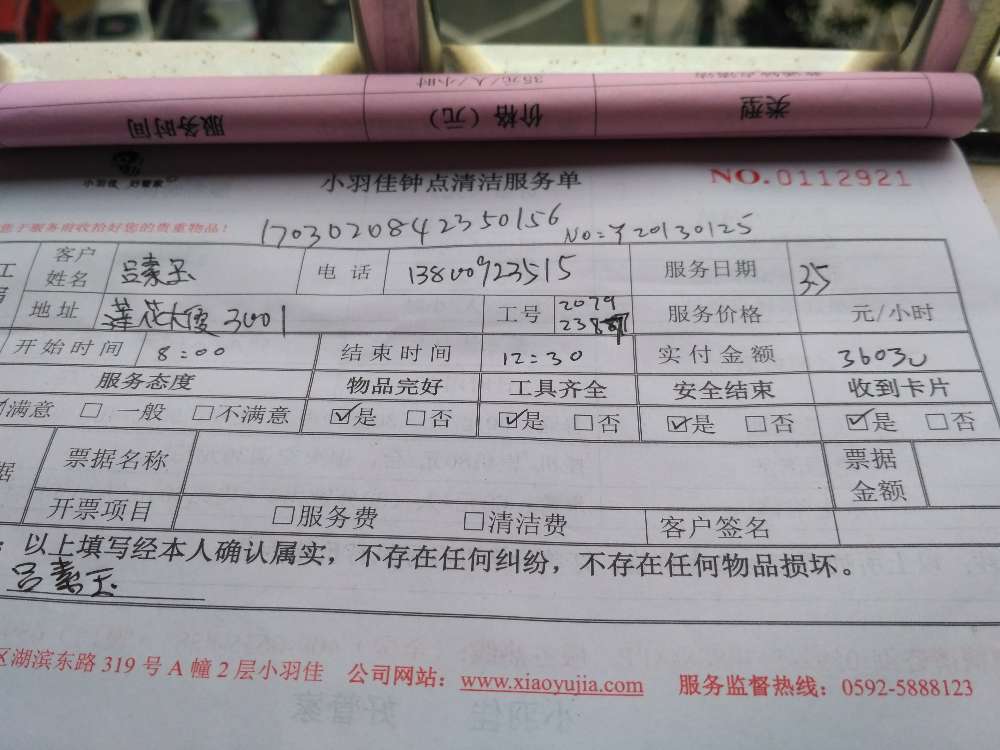 35元/人/小时
服务时间 价格（元） 类型
小羽佳 好管家
小羽佳钟点清洁服务单 NO.0112921
于服务前收拾好您的贵重物品！
1703020842350156 NO:Y20130125
客户姓名 吕素玉 电话 13800923515 服务日期
地址 莲花大厦3001 工号 2079 服务价格 35 元/小时
开始时间 8:00 结束时间 12:30 实付金额
服务态度 物品完好 工具齐全 安全结束 收到卡片
☑满意 □一般 □不满意 ☑是 □否 ☑是 □否 ☑是 □否 ☑是 □否
票据名称 票据金额
开票项目 □服务费 □清洁费 客户签名
以上填写经本人确认属实，不存在任何纠纷，不存在任何物品损坏。
吕素玉
区湖滨东路319号A幢2层小羽佳 公司网站：www.xiaoyujia.com 服务监督热线：0592-5888123
小羽佳 好管家